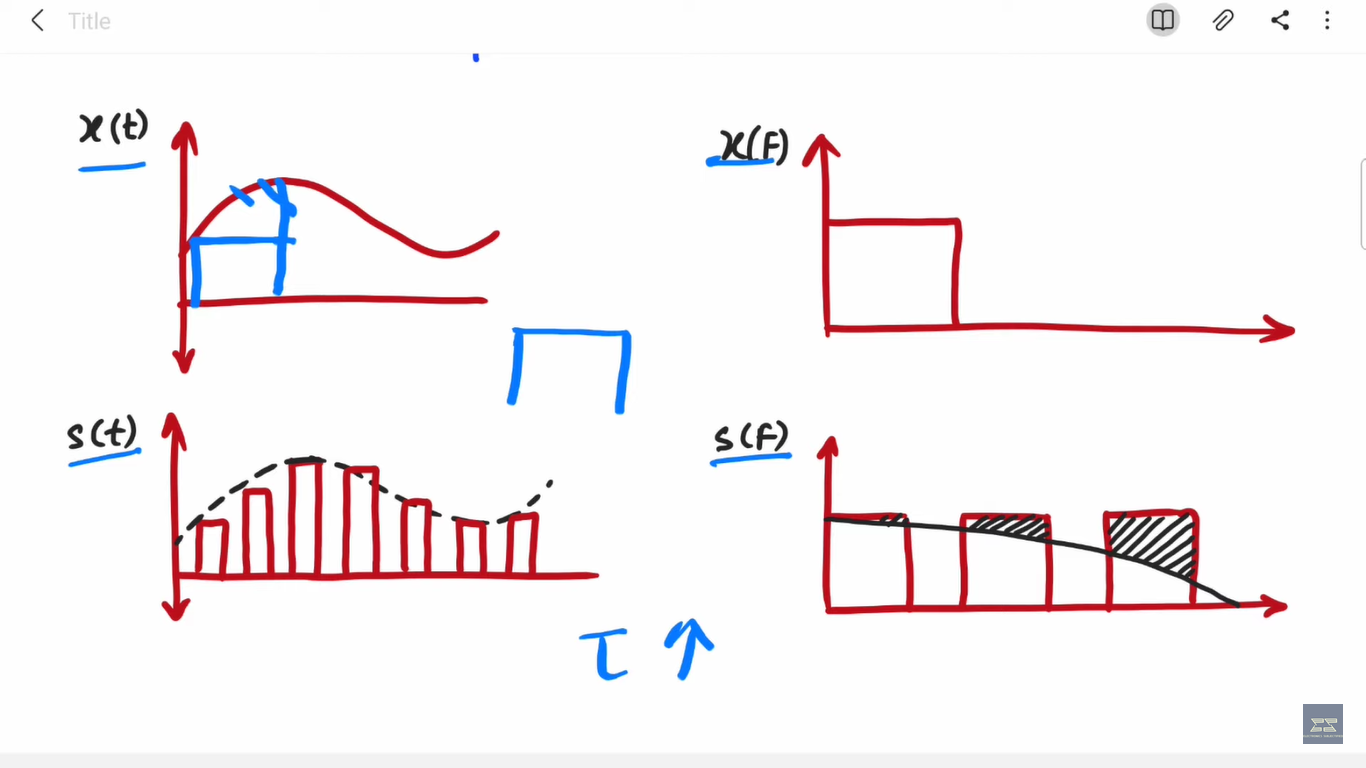 Title
x(t)
x(F)
s(t)
s(F)
τ ↑